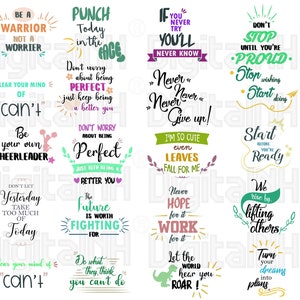 BE A
WARRIOR
NOT A
WORRIER
PUNCH
Today
in the
FACE
IF YOU
NEVER TRY
YOU'LL
NEVER KNOW
DON'T
STOP
UNTIL YOU'RE
PROUD
CLEAR YOUR MIND OF
"can't"
Don't worry
about being
PERFECT
just keep being
a better you
Never
Never
Never
Give up!
Stop
wishing
Start
doing
Be
your own
CHEERLEADER
DON'T WORRY
ABOUT BEING
Perfect
JUST KEEP BEING A
BETTER YOU
I'M SO CUTE
even
LEAVES
FALL FOR ME
Start
before
You're
Ready
DON'T LET
Yesterday
TAKE TOO
MUCH OF
Today
The
FUTURE
IS WORTH
FIGHTING
FOR
Never
HOPE
for it
WORK
for it
We
rise by
lifting
others
Clear your mind of
"CAN'T"
Do what
They think
you can't do
Let
the WORLD
hear you
ROAR!
Turn
your
dreams
into
plans